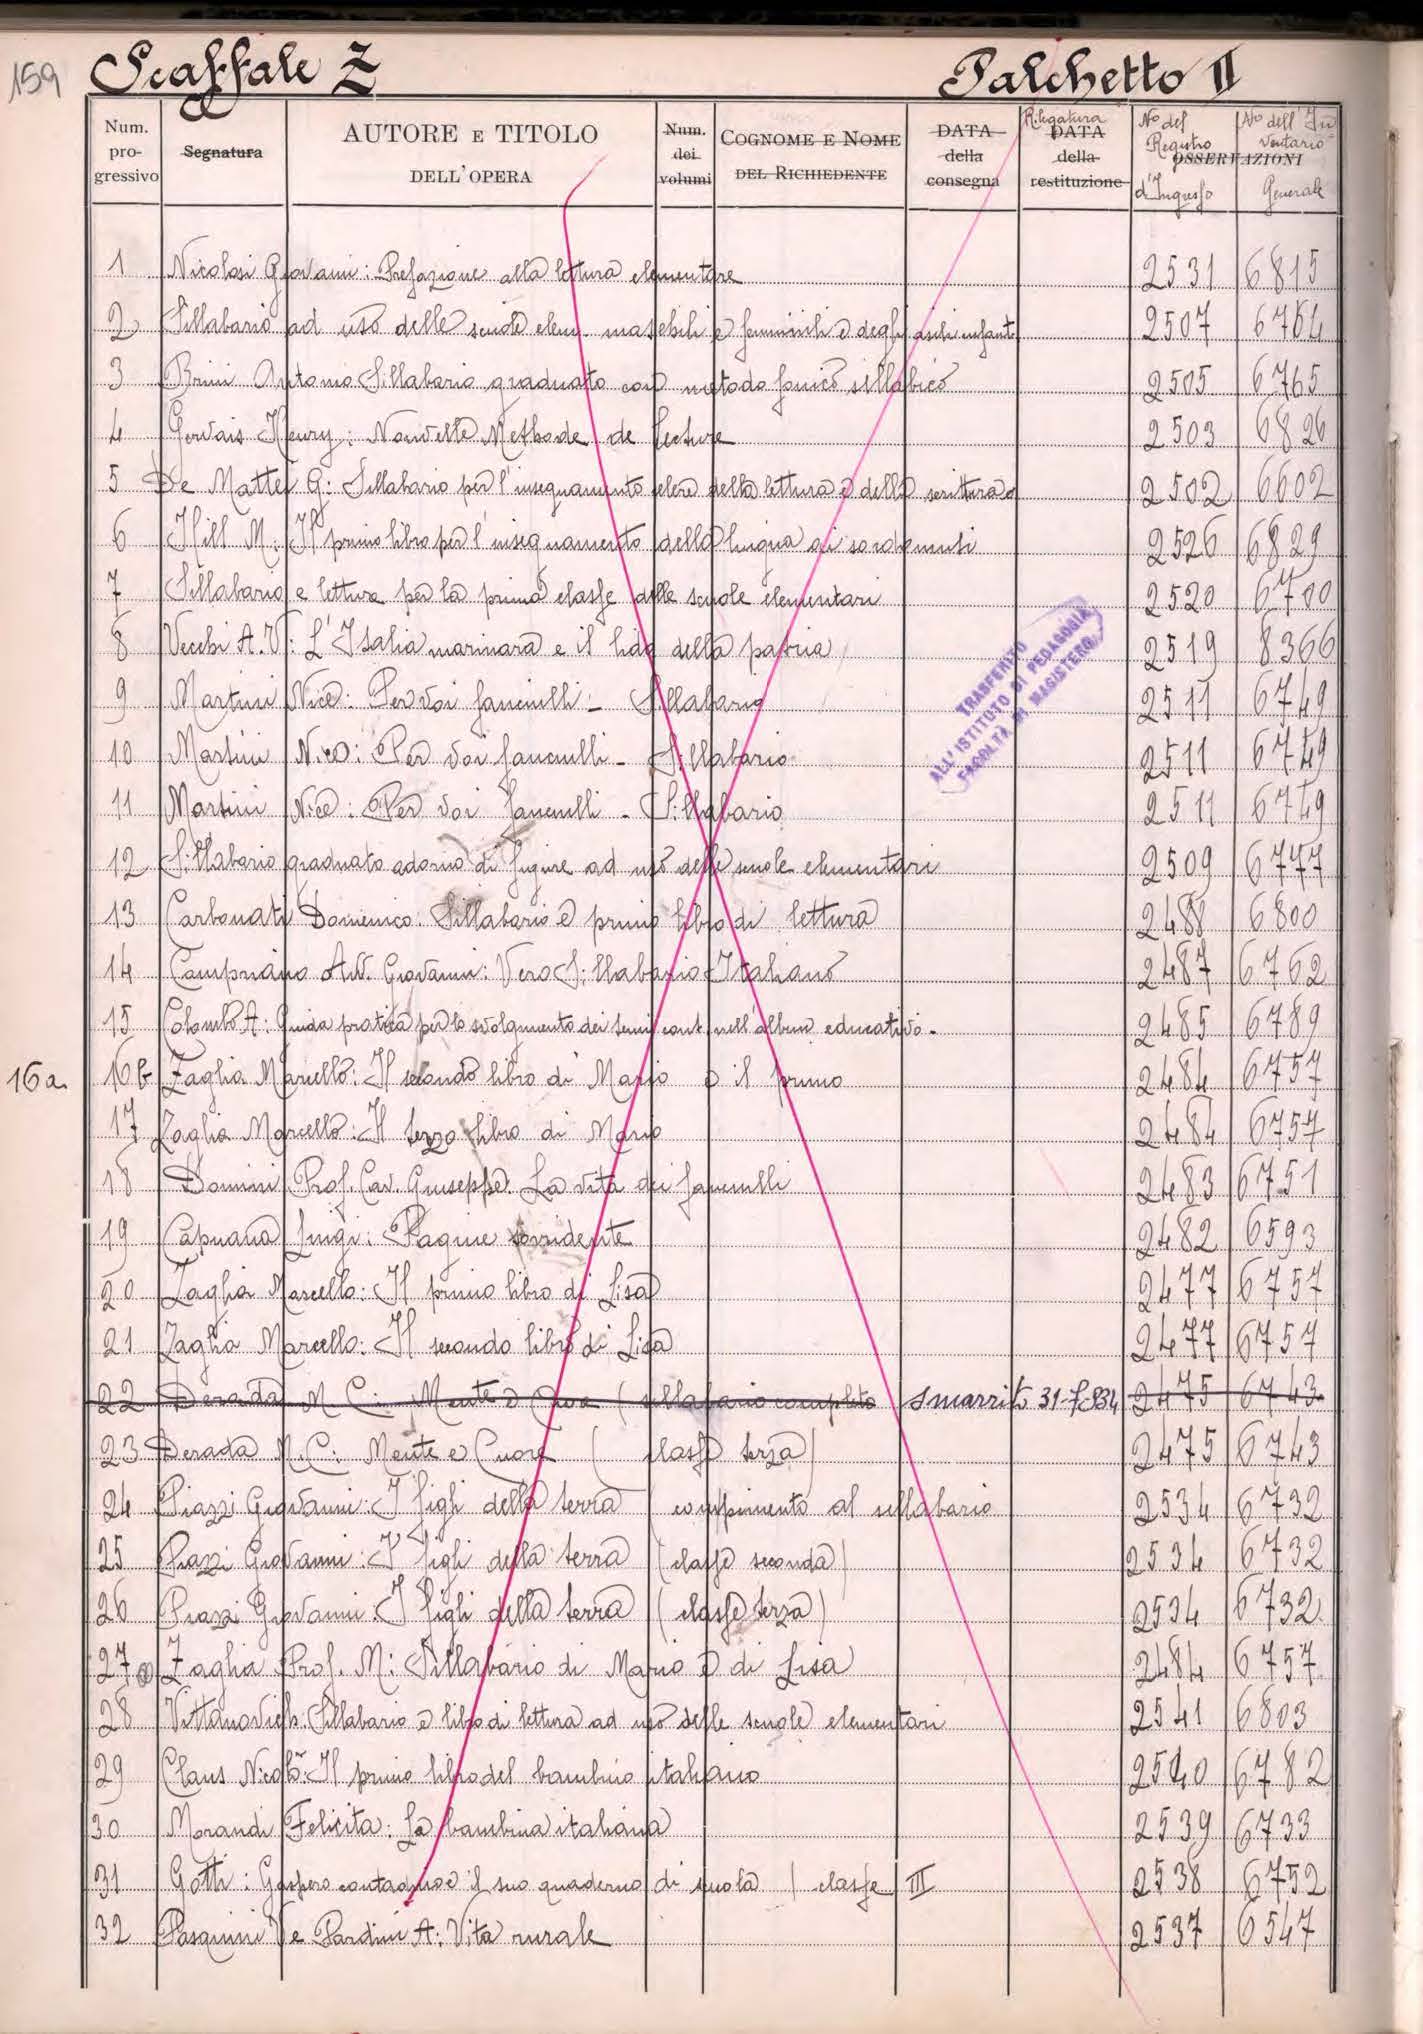 159 Scaffale Z Palchetto II
Num. progressivo Segnatura AUTORE E TITOLO DELL'OPERA Num. dei volumi COGNOME E NOME DEL RICHIEDENTE DATA della consegna Rilegatura DATA della restituzione No del Registro d'Ingresso OSSERVAZIONI No dell'Inventario Generale
1 Nicolosi Giovanni: Prefazione alla lettura elementare 2531 6815
2 Sillabario ad uso delle scuole elem. maschili e femminili e degli asili infant. 2507 6764
3 Brini Antonio Sillabario graduato con metodo fonico sillabico 2505 6765
4 Gervais Henry: Nouvelle Methode de lecture 2503 6826
5 De Mattei G: Sillabario per l'insegnamento celere della lettura e della scrittura 2502 6602
6 Hill M: Il primo libro per l'insegnamento della lingua ai sordomuti 2526 6829
7 Sillabario e letture per la prima classe delle scuole elementari 2520 6700
8 Vecchi A.V: L'Italia marinara e il lido della patria 2519 8366
9 Martini Nice: Per voi fanciulli - Sillabario 2511 6749
10 Martini Nice: Per voi fanciulli - Sillabario 2511 6749
11 Martini Nice: Per voi fanciulli - Sillabario 2511 6749
TRASFERITO
ALL'ISTITUTO DI PEDAGOGIA
FACOLTÀ DI MAGISTERO
12 Sillabario graduato adorno di figure ad uso delle scuole elementari 2509 6777
13 Carbonati Domenico. Sillabario e primo libro di lettura 2488 6800
14 Campriano Avv. Giovanni: Vero Sillabario Italiano 2487 6762
15 Colombo A: Guida pratica per lo svolgimento dei temi cont. nell'album educativo. 2485 6789
16a 16b Zaglia Marcello: Il secondo libro di Mario e il primo 2484 6757
17 Zaglia Marcello: Il terzo libro di Mario 2484 6757
18 Donnini Prof. Cav. Giuseppe. La vita dei fanciulli 2483 6751
19 Capuana Luigi: Pagine sorridente 2482 6593
20 Zaglia Marcello: Il primo libro di Lisa 2477 6757
21 Zaglia Marcello: Il secondo libro di Lisa 2477 6757
22 Derada M. C: Mente e Cuore (sillabario completo smarrito 31-7-934 2475 6743
23 Derada M. C: Mente e Cuore (classe terza) 2475 6743
24 Piazzi Giovanni: I figli della terra (compimento al sillabario 2534 6732
25 Piazzi Giovanni: I figli della terra (classe seconda) 2534 6732
26 Piazzi Giovanni: I figli della terra (classe terza) 2534 6732
27 Zaglia Prof. M: Sillabario di Mario e di Lisa 2484 6757
28 Vittanovich. Sillabario e libro di lettura ad uso delle scuole elementari 2541 6803
29 Claus Nicolò: Il primo libro del bambino italiano 2540 6782
30 Morandi Felicita: La bambina italiana 2539 6733
31 Gotti: Gaspero contadino e il suo quaderno di scuola (classe III 2538 6752
32 Pasquini V e Pardini A: Vita rurale 2537 6547